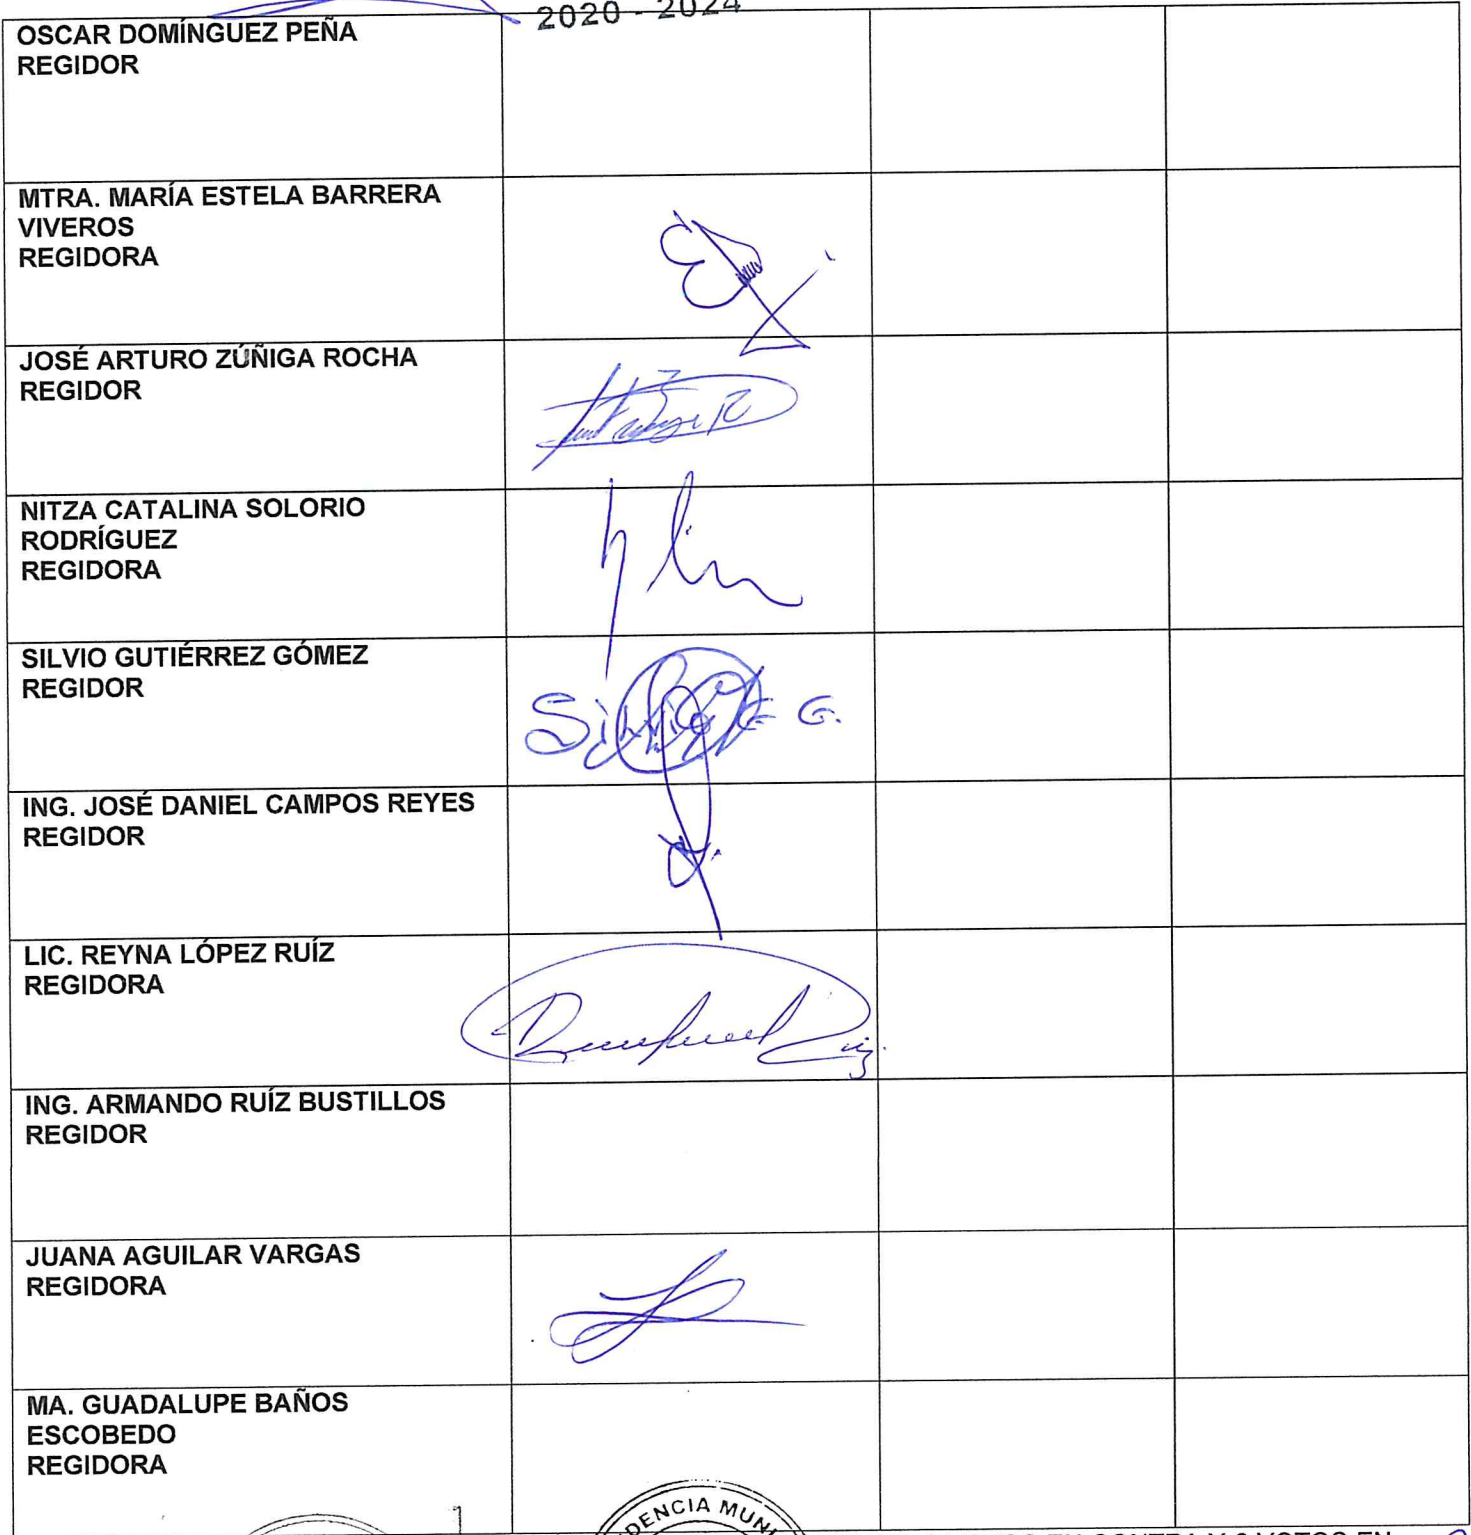 2020 - 2024
OSCAR DOMÍNGUEZ PEÑA
REGIDOR
MTRA. MARÍA ESTELA BARRERA
VIVEROS
REGIDORA
JOSÉ ARTURO ZÚÑIGA ROCHA
REGIDOR
NITZA CATALINA SOLORIO
RODRÍGUEZ
REGIDORA
SILVIO GUTIÉRREZ GÓMEZ
REGIDOR
Silvio G. G.
ING. JOSÉ DANIEL CAMPOS REYES
REGIDOR
LIC. REYNA LÓPEZ RUÍZ
REGIDORA
ING. ARMANDO RUÍZ BUSTILLOS
REGIDOR
JUANA AGUILAR VARGAS
REGIDORA
MA. GUADALUPE BAÑOS
ESCOBEDO
REGIDORA
DENCIA MUNI